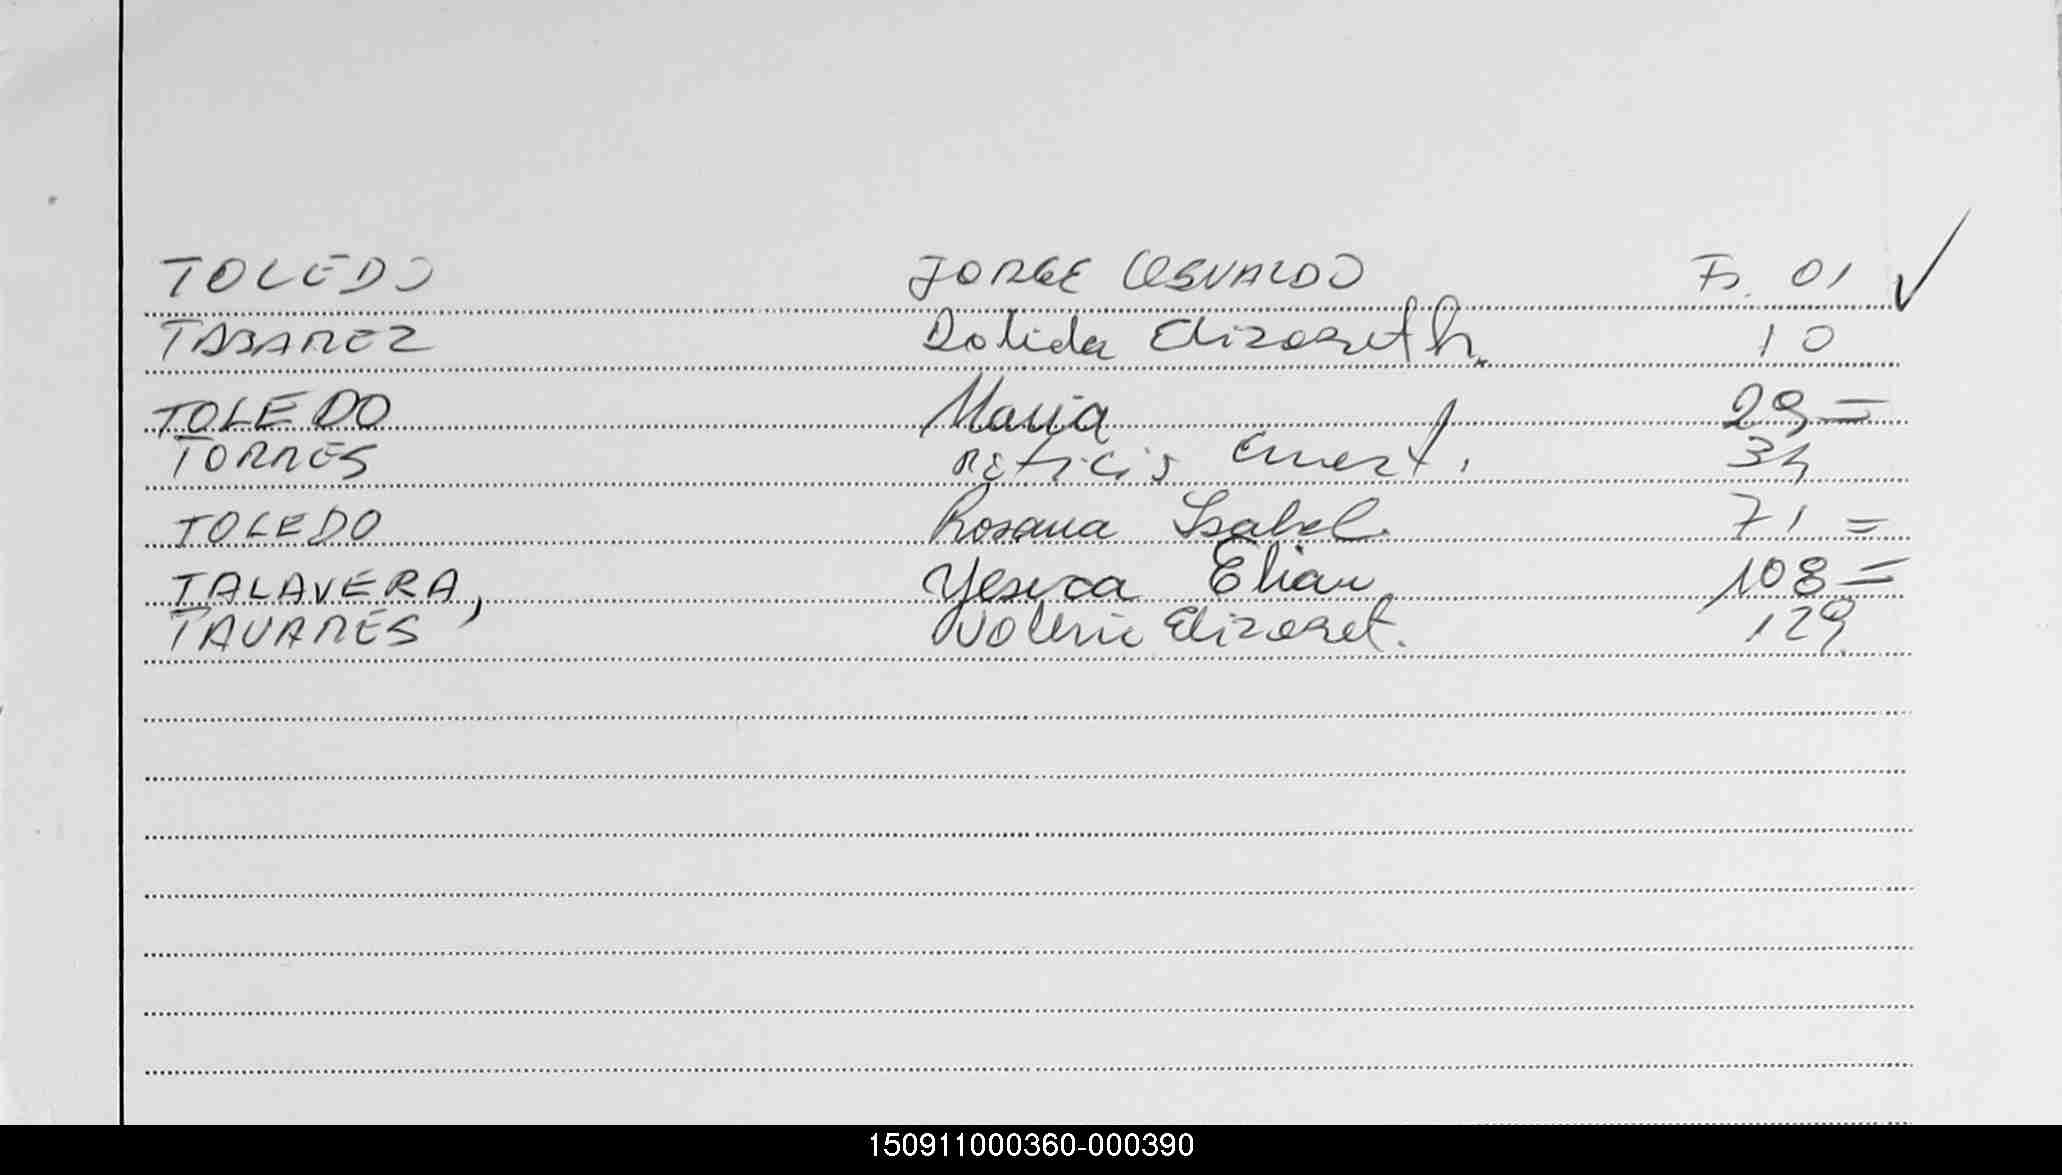 TOLEDO JORGE OSVALDO Fs. 01
TABAREZ Dolida Elizabeth. 10
TOLEDO Maria 29 =
TORRES 34
TOLEDO Rosana Isabel. 71 =
TALAVERA, Yesica Elian 108 =
TAVARES Elizabet. 129
150911000360-000390